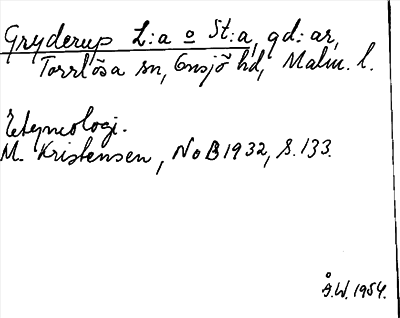 Gryderup L:a o St:a, gd:ar,
Torrlösa sn, Onsjö hd, Malm. l.
Etymologi.
M. Kristensen, NoB 1932, s. 133.
Å.W. 1954.